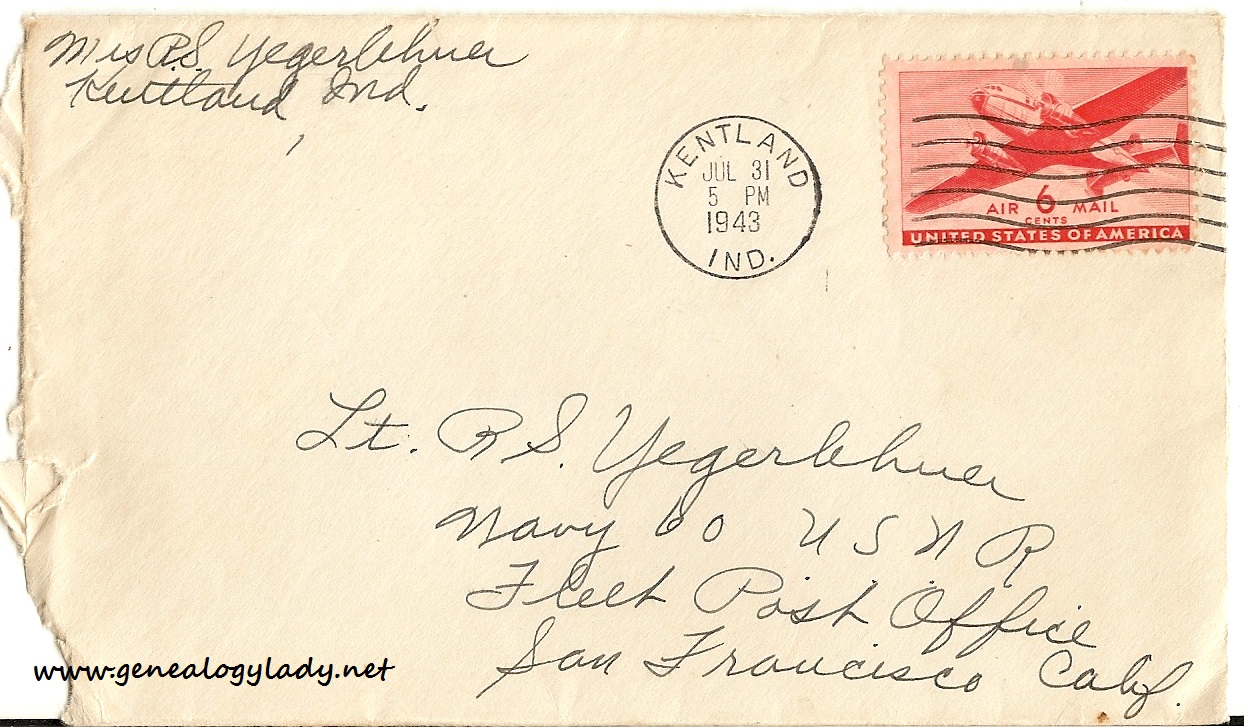 Mrs R.S. Yegerlehner
Kentland Ind.
KENTLAND
JUL 31
5 PM
1943
IND.
AIR 6 MAIL
CENTS
UNITED STATES OF AMERICA
Lt. R S. Yegerlehner
Navy 60 U S N R
Fleet Post Office
San Francisco Calif.
www.genealogylady.net